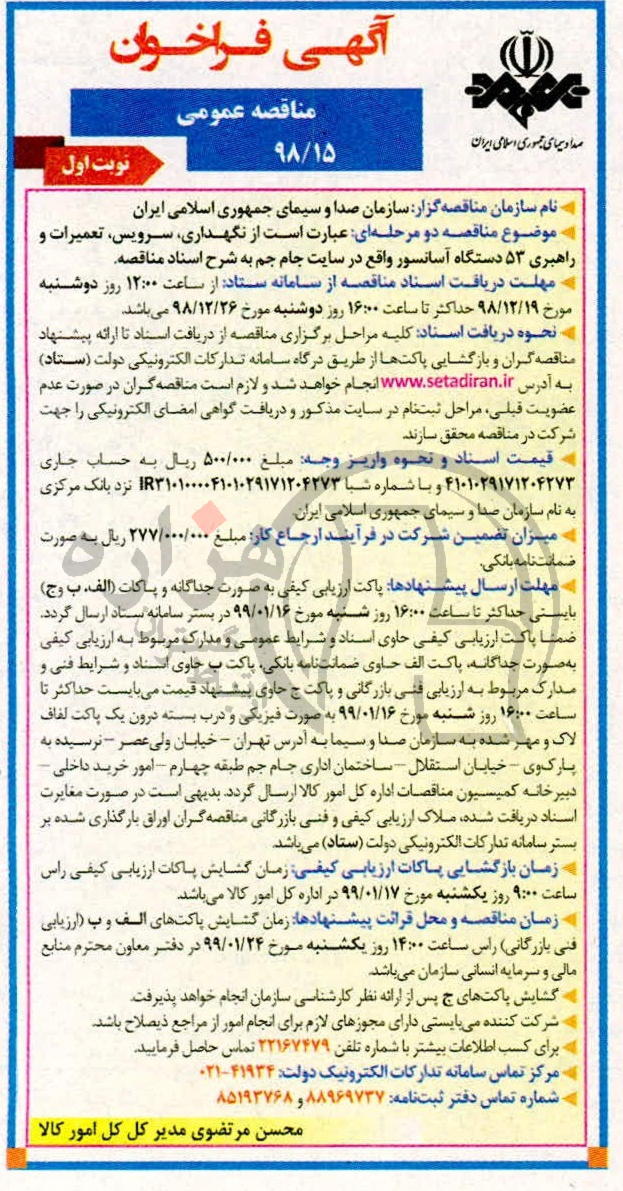 آگهی فراخوان
صدا و سیمای جمهوری اسلامی ایران
مناقصه عمومی
۹۸/۱۵
نوبت اول
نام سازمان مناقصه‌گزار: سازمان صدا و سیمای جمهوری اسلامی ایران
موضوع مناقصه دو مرحله‌ای: عبارت است از نگهداری، سرویس، تعمیرات و
راهبری ۵۳ دستگاه آسانسور واقع در سایت جام جم به شرح اسناد مناقصه.
مهلت دریافت اسناد مناقصه از سامانه ستاد: از ساعت ۱۲:۰۰ روز دوشنبه
مورخ ۹۸/۱۲/۱۹ حداکثر تا ساعت ۱۶:۰۰ روز دوشنبه مورخ ۹۸/۱۲/۲۶ می‌باشد.
نحوه دریافت اسناد: کلیه مراحل برگزاری مناقصه از دریافت اسناد تا ارائه پیشنهاد
مناقصه‌گران و بازگشایی پاکت‌ها از طریق درگاه سامانه تدارکات الکترونیکی دولت (ستاد)
به آدرس www.setadiran.ir انجام خواهد شد و لازم است مناقصه‌گران در صورت عدم
عضویت قبلی، مراحل ثبت‌نام در سایت مذکور و دریافت گواهی امضای الکترونیکی را جهت
شرکت در مناقصه محقق سازند.
قیمت اسناد و نحوه واریز وجه: مبلغ ۵۰۰/۰۰۰ ریال به حساب جاری
۴۱۰۱۰۲۹۱۷۱۲۰۴۲۷۳ و با شماره شبا IR۳۱۰۱۰۰۰۰۴۱۰۱۰۲۹۱۷۱۲۰۴۲۷۳ نزد بانک مرکزی
به نام سازمان صدا و سیمای جمهوری اسلامی ایران.
میزان تضمین شرکت در فرآیند ارجاع کار: مبلغ ۲۷۷/۰۰۰/۰۰۰ ریال به صورت
ضمانت‌نامه بانکی.
مهلت ارسال پیشنهادها: پاکت ارزیابی کیفی به صورت جداگانه و پاکات (الف، ب وج)
بایستی حداکثر تا ساعت ۱۶:۰۰ روز شنبه مورخ ۹۹/۰۱/۱۶ در بستر سامانه ستاد ارسال گردد.
ضمنا پاکت ارزیابی کیفی حاوی اسناد و شرایط عمومی و مدارک مربوط به ارزیابی کیفی
به‌صورت جداگانه، پاکت الف حاوی ضمانت‌نامه بانکی، پاکت ب حاوی اسناد و شرایط فنی و
مدارک مربوط به ارزیابی فنی بازرگانی و پاکت ج حاوی پیشنهاد قیمت می‌بایست حداکثر تا
ساعت ۱۶:۰۰ روز شنبه مورخ ۹۹/۰۱/۱۶ به صورت فیزیکی و درب بسته درون یک پاکت لفاف
لاک و مهر شده به سازمان صدا و سیما به آدرس تهران – خیابان ولی‌عصر – نرسیده به
پارک‌وی – خیابان استقلال – ساختمان اداری جام جم طبقه چهارم – امور خرید داخلی –
دبیرخانه کمیسیون مناقصات اداره کل امور کالا ارسال گردد. بدیهی است در صورت مغایرت
اسناد دریافت شده، ملاک ارزیابی کیفی و فنی بازرگانی مناقصه‌گران اوراق بارگذاری شده بر
بستر سامانه تدارکات الکترونیکی دولت (ستاد) می‌باشد.
زمان بازگشایی پاکات ارزیابی کیفی: زمان گشایش پاکات ارزیابی کیفی راس
ساعت ۹:۰۰ روز یکشنبه مورخ ۹۹/۰۱/۱۷ در اداره کل امور کالا می‌باشد.
زمان مناقصه و محل قرائت پیشنهادها: زمان گشایش پاکت‌های الف و ب (ارزیابی
فنی بازرگانی) راس ساعت ۱۴:۰۰ روز یکشنبه مورخ ۹۹/۰۱/۲۴ در دفتر معاون محترم منابع
مالی و سرمایه انسانی سازمان می‌باشد.
گشایش پاکت‌های ج پس از ارائه نظر کارشناسی سازمان انجام خواهد پذیرفت.
شرکت کننده می‌بایستی دارای مجوزهای لازم برای انجام امور از مراجع ذیصلاح باشد.
برای کسب اطلاعات بیشتر با شماره تلفن ۲۲۱۶۷۴۷۹ تماس حاصل فرمایید.
مرکز تماس سامانه تدارکات الکترونیک دولت: ۴۱۹۳۴-۰۲۱
شماره تماس دفتر ثبت‌نامه: ۸۸۹۶۹۷۳۷ و ۸۵۱۹۳۷۶۸
محسن مرتضوی مدیر کل کل امور کالا